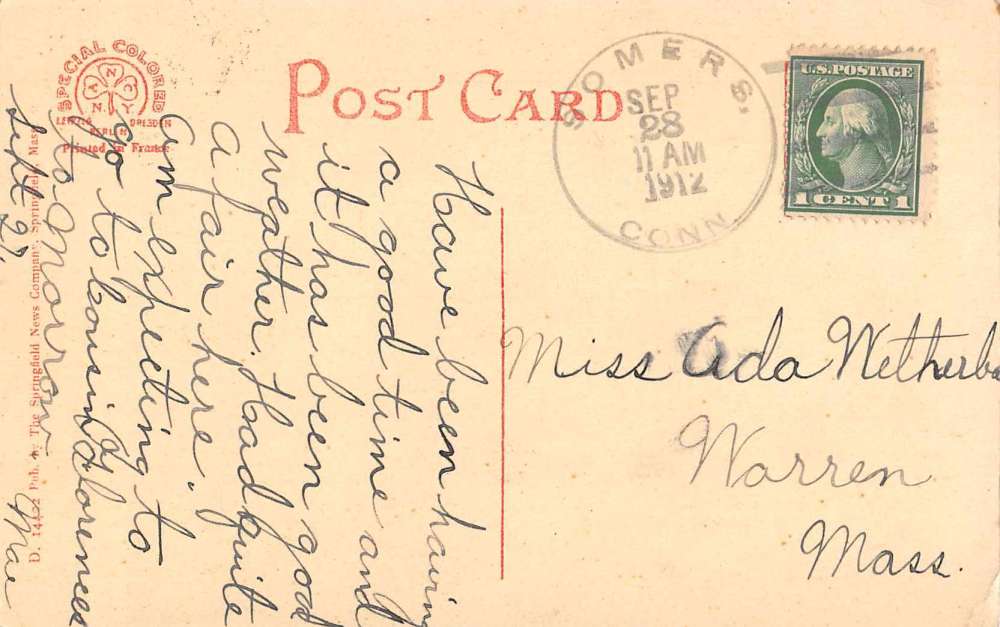 SPECIAL COLORED
ANNCOY
LEIPZIG DRESDEN
BERLIN
Printed in France
POST CARD
SOMERS,
SEP
28
11 AM
1912
CONN.
U.S. POSTAGE
1 CENT 1
Have been having
a good time and
it has been good
weather. Had quite
a fair here.
Am expecting to
go to Cousin Florences
to-Morrow.
Sept 27. Mae
Miss Ada Wetherb
Warren
Mass.
D. 14422 Pub. by The Springfield News Company, Springfield, Mass.